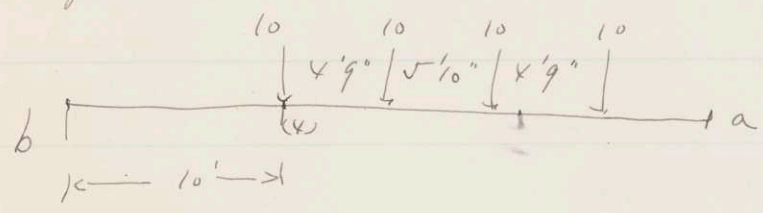 10 10 10 10
4'9" 5'10" 4'9"
b (4) a
10'